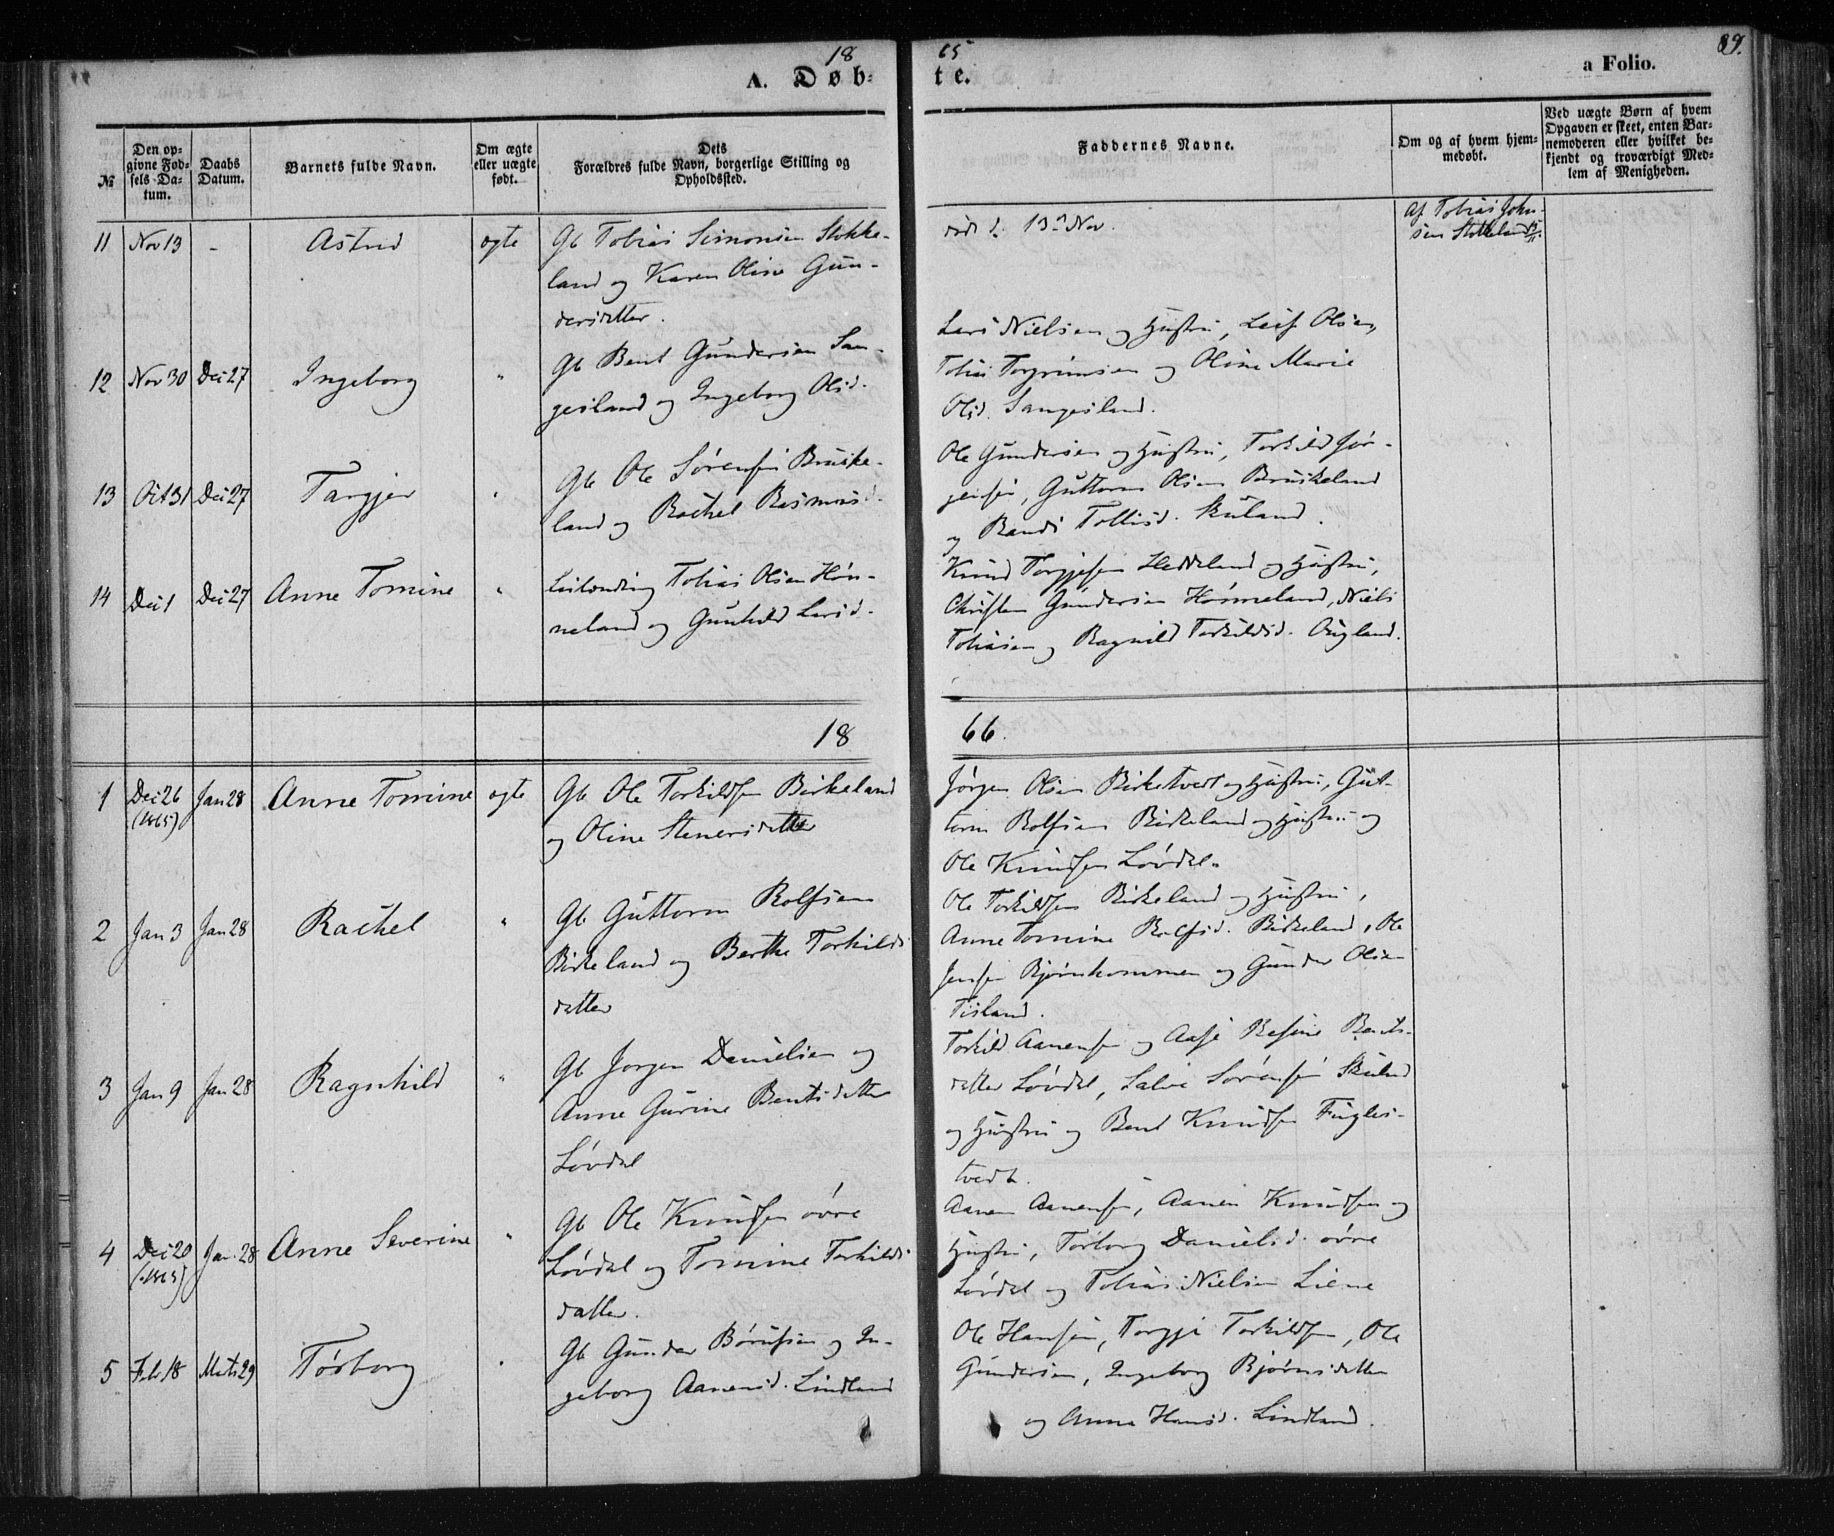 18 65 89.
A. Døb-te. a Folio.
№
Den op-
givne Fød-
sels Da-
tum.
Daabs
Datum.
Barnets fulde Navn.
Om ægte
eller uægte
født.
Dets
Forældres fulde Navn, borgerlige Stilling og
Opholdssted.
Faddernes Navne.
Om og af hvem hjem-
medøbt.
Ved uægte Børn af hvem
Opgaven er skeet, enten Bar-
nemoderen eller hvilket be-
kjendt og troværdigt Med-
lem af Menigheden.
11 Nov 13 - Astrid ægte Gb Tobias Simonsen Stokke-
land og Karen Oline Gun-
dersdatter.
død d. 13 Nov.
Af Tobias John-
sen Stokkeland
12 Nov 30 Dec 27 Ingeborg " Gb Bent Gundersen San-
gesland og Ingeborg Olsd.
Lars Nielsen og Hustru, Leif Olsen,
Tobias Torgrimsen og Oline Marie
Olsd. Sangesland.
13 Oct 31 Dec 27 Targjer " Gb Ole Sørensen Bruske-
land og Rachel Rasmusd.
Ole Gundersen og Hustru, Torkild Jør-
gensen, Guttorm Olsen Bruskeland
og Randi Tollisd. Skuland.
14 Dec 1 Dec 27 Anne Tomine " Leilænding Tobias Olsen Høn-
neland og Gunhild Larsd.
Knud Torgjesen Heddeland og Hustru,
Christen Gundersen Hønneland, Niels
Tobiasen og Ragnild Torkildsd. Augland.
18 66.
1 Dec 26 (1865) Jan 28 Anne Tomine ægte Gb Ole Torkildsen Birkeland
og Oline Stenersdatter
Jørgen Olsen Birketvedt og Hustru, Gut-
torm Rolfsen Birkeland og Hustru og
Ole Knudsen Løvdal.
2 Jan 3 Jan 28 Rachel " Gb Guttorm Rolfsen
Birkeland og Berthe Torkilds
datter
Ole Torkildsen Birkeland og Hustru,
Anne Tomine Rolfsd. Birkeland, Ole
Jensen Bjørnkommen og Gunder Olsen
Tisland.
3 Jan 9 Jan 28 Ragnhild " Gb Jørgen Danielsen og
Anne Gurine Bentsdatter
Løvdal
Torkild Aanensen og Aase Resine Bents-
datter Løvdal, Salve Sørensen Skuland
og Hustru og Bent Knudsen Fugles-
tvedt.
4 Dec 20 (1865) Jan 28 Anne Severine " Gb Ole Knudsen øvre
Løvdal og Tomine Torkilds
datter.
Aanen Aanensen, Aanen Knudsen og
Hustru, Torborg Danielsd. øvre
Løvdal og Tobias Nielsen Liene
5 Feb 18 Mts 29 Torborg " Gb Gunder Børufsen og In-
geborg Aanensd. Lindland
Ole Hansen, Torgje Torkildsen, Ole
Gundersen, Ingeborg Bjørnsdatter
og Anne Hansd. Lindland.